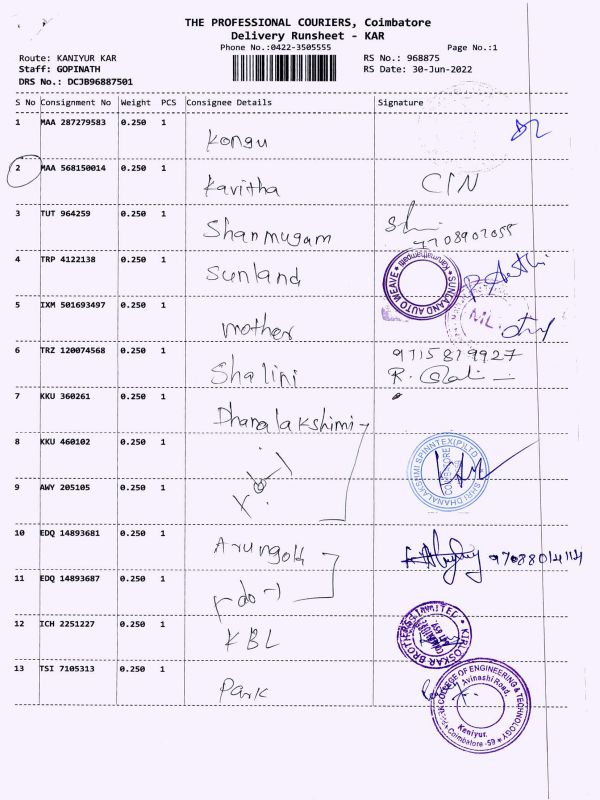 THE PROFESSIONAL COURIERS, Coimbatore
Delivery Runsheet - KAR
Phone No.:0422-3505555 Page No.:1
Route: KANIYUR KAR RS No.: 968875
Staff: GOPINATH RS Date: 30-Jun-2022
DRS No.: DCJB96887501
S No Consignment No Weight PCS Consignee Details Signature
1 MAA 287279583 0.250 1 Kongu
2 MAA 568150014 0.250 1 Kavitha CIN
3 TUT 964259 0.250 1 Shanmugam 7708902055
4 TRP 4122138 0.250 1 Sunland SUNLAND AUTO WEAVE
5 IXM 501693497 0.250 1 mother ML
6 TRZ 120074568 0.250 1 Shalini 9715819927
7 KKU 360261 0.250 1 Dhanalakshimi
8 KKU 460102 0.250 1 SHRI DHANALAKSHMI SPINNTEX(P)LTD COIMBATORE
9 AWY 205105 0.250 1
10 EDQ 14893681 0.250 1
11 EDQ 14893687 0.250 1 do
12 ICH 2251227 0.250 1 KBL KIRLOSKAR BROTHERS LIMITED
13 TSI 7105313 0.250 1 Park PARK COLLEGE OF ENGINEERING & TECHNOLOGY
Avinashi Road,
Kaniyur.
Coimbatore -59